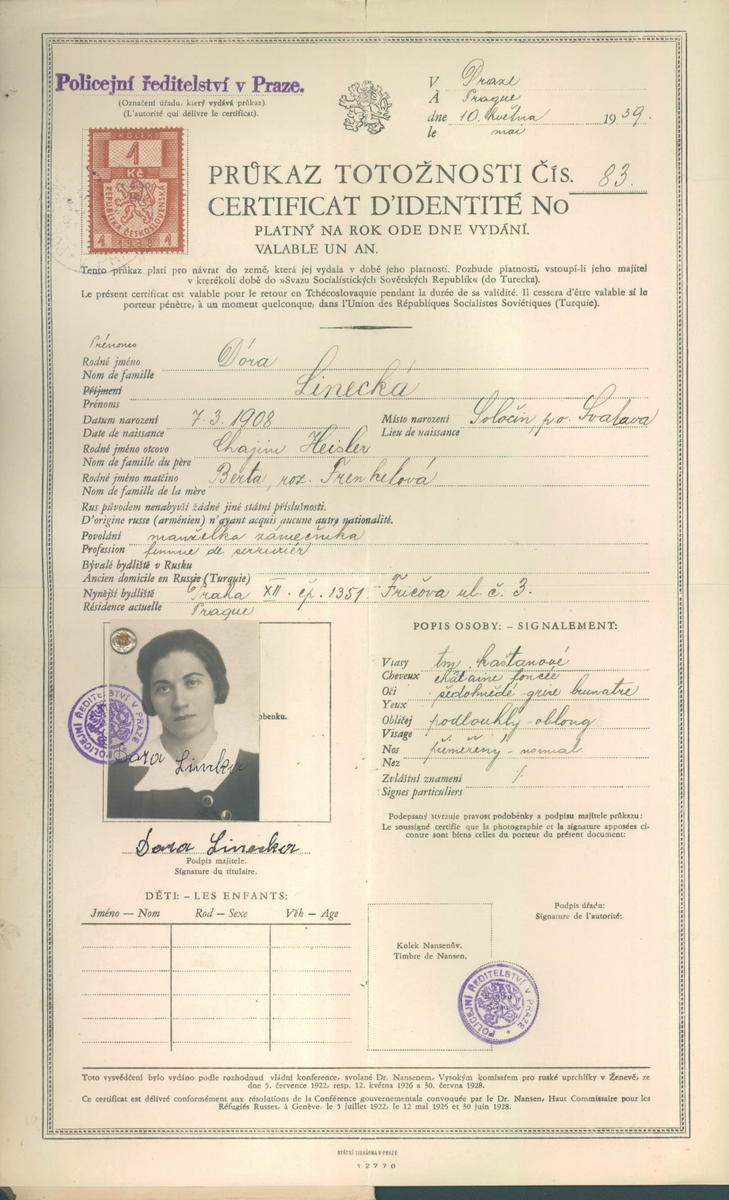 Policejní ředitelství v Praze.
(Označení úřadu, který vydává průkaz).
(L'autorité qui délivre le certificat).
V Praze
À Prague
dne 10. května 1939.
le mai
KOLEK
1
Kč
REPUBLIKA ČESKOSLOVENSKÁ
1 1938 1
PRŮKAZ TOTOŽNOSTI ČÍS. 83.
CERTIFICAT D'IDENTITÉ NO
PLATNÝ NA ROK ODE DNE VYDÁNÍ.
VALABLE UN AN.
Tento průkaz platí pro návrat do země, která jej vydala v době jeho platnosti. Pozbude platnosti, vstoupí-li jeho majitel
v kterékoli době do »Svazu Socialistických Sovětských Republik« (do Turecka).
Le présent certificat est valable pour le retour en Tchécoslovaquie pendant la durée de sa validité. Il cessera d'être valable si le
porteur pénètre, à un moment quelconque, dans l'Union des Républiques Socialistes Soviétiques (Turquie).
Prénoms
Rodné jméno Dóra
Nom de famille
Příjmení Linecká
Prénoms
Datum narození 7. 3. 1908 Místo narození Soločin, po. Svalava
Date de naissance Lieu de naissance
Rodné jméno otcovo Chajim Heisler
Nom de famille du père
Rodné jméno matčino Berta, roz. Frenkelová
Nom de famille de la mère
Rus původem nenabyvší žádné jiné státní příslušnosti.
D'origine russe (arménien) n'ayant acquis aucune autre nationalité.
Povolání manželka zámečníka
Profession femme de serrurier
Bývalé bydliště v Rusku
Ancien domicile en Russie (Turquie)
Nynější bydliště Praha XII. čp. 1351. Fričova ul. č. 3.
Résidence actuelle Prague
POPIS OSOBY: – SIGNALEMENT:
Vlasy tm. kaštanové
Cheveux châtaine foncée
Oči šedohnědé
Yeux
Obličej podlouhlý – oblong
Visage
Nos přiměřený – normal
Nez
Zvláštní znamení /.
Signes particuliers
obenku.
POLICEJNÍ ŘEDITELSTVÍ V PRAZE
Dora Linecker
Dora Linecker
Podpis majitele.
Signature du titulaire.
Podepsaný stvrzuje pravost podoběnky a podpisu majitele průkazu:
Le soussigné certifie que la photographie et la signature apposées ci-
contre sont biens celles du porteur du présent document:
DĚTI: – LES ENFANTS:
Jméno — Nom Rod — Sexe Věk — Age
Podpis úřadu:
Signature de l'autorité:
Kolek Nansenův.
Timbre de Nansen.
POLICEJNÍ ŘEDITELSTVÍ V PRAZE
Toto vysvědčení bylo vydáno podle rozhodnutí vládní konference, svolané Dr. Nansenem, Vysokým komisařem pro ruské uprchlíky v Ženevě, ze
dne 5. července 1922, resp. 12. května 1926 a 30. června 1928.
Ce certificat est délivré conformément aux résolutions de la Conférence gouvernementale convoquée par le Dr. Nansen, Haut Commissaire pour les
Réfugiés Russes, à Genève, le 5 juillet 1922, le 12 mai 1926 et 30 juin 1928.
STÁTNÍ TISKÁRNA V PRAZE
12770